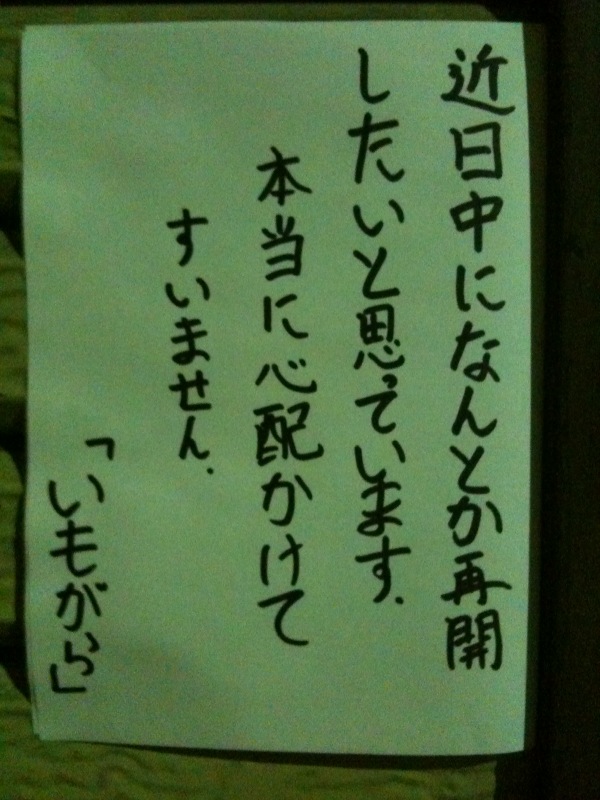 近日中になんとか再開
したいと思っています.
本当に心配かけて
すいません.
「いもがら」